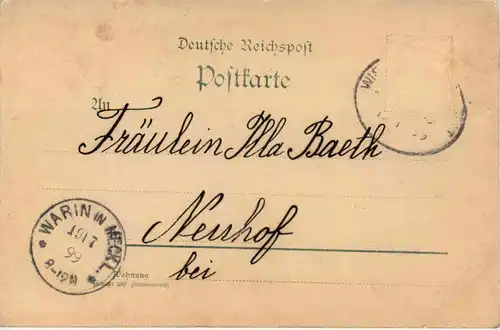 Deutsche Reichspost
Postkarte
An
Fräulein Illa Baeth
Neuhof
bei
Wohnung
WARIN IN MECKL.
19 7
99
8-12N
WIS